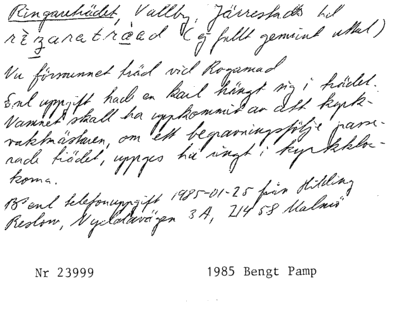 Ringareträdet, Vallby, Järrestads hd
(ej fullt genuint uttal)
Nu försvunnet träd vid Rogamad
Enl uppgift hade en karl hängt sig i trädet.
Namnet skall ha uppkommit av att kyrk-
vaktmästaren, om ett begravningsfölje passe-
rade trädet, uppges ha ringt i kyrkklo-
korna.
enl telefonuppgift 1985-01-25 från
3A, 214 58 Malmö
Nr 23999 1985 Bengt Pamp